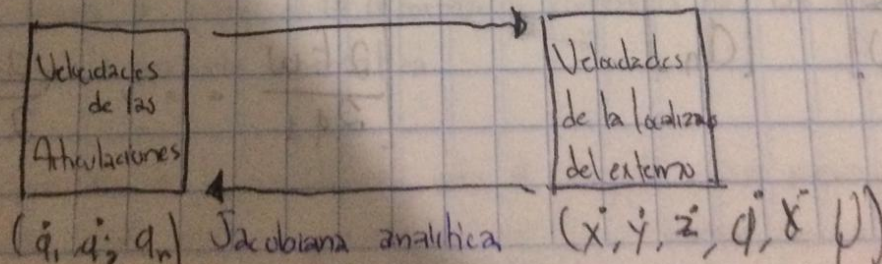 Velocidades
de las
Articulaciones
Velocidades
de la localiza
del extremo
(q̇, q̇; qn) Jacobiana analitica (ẋ, ẏ, ż,